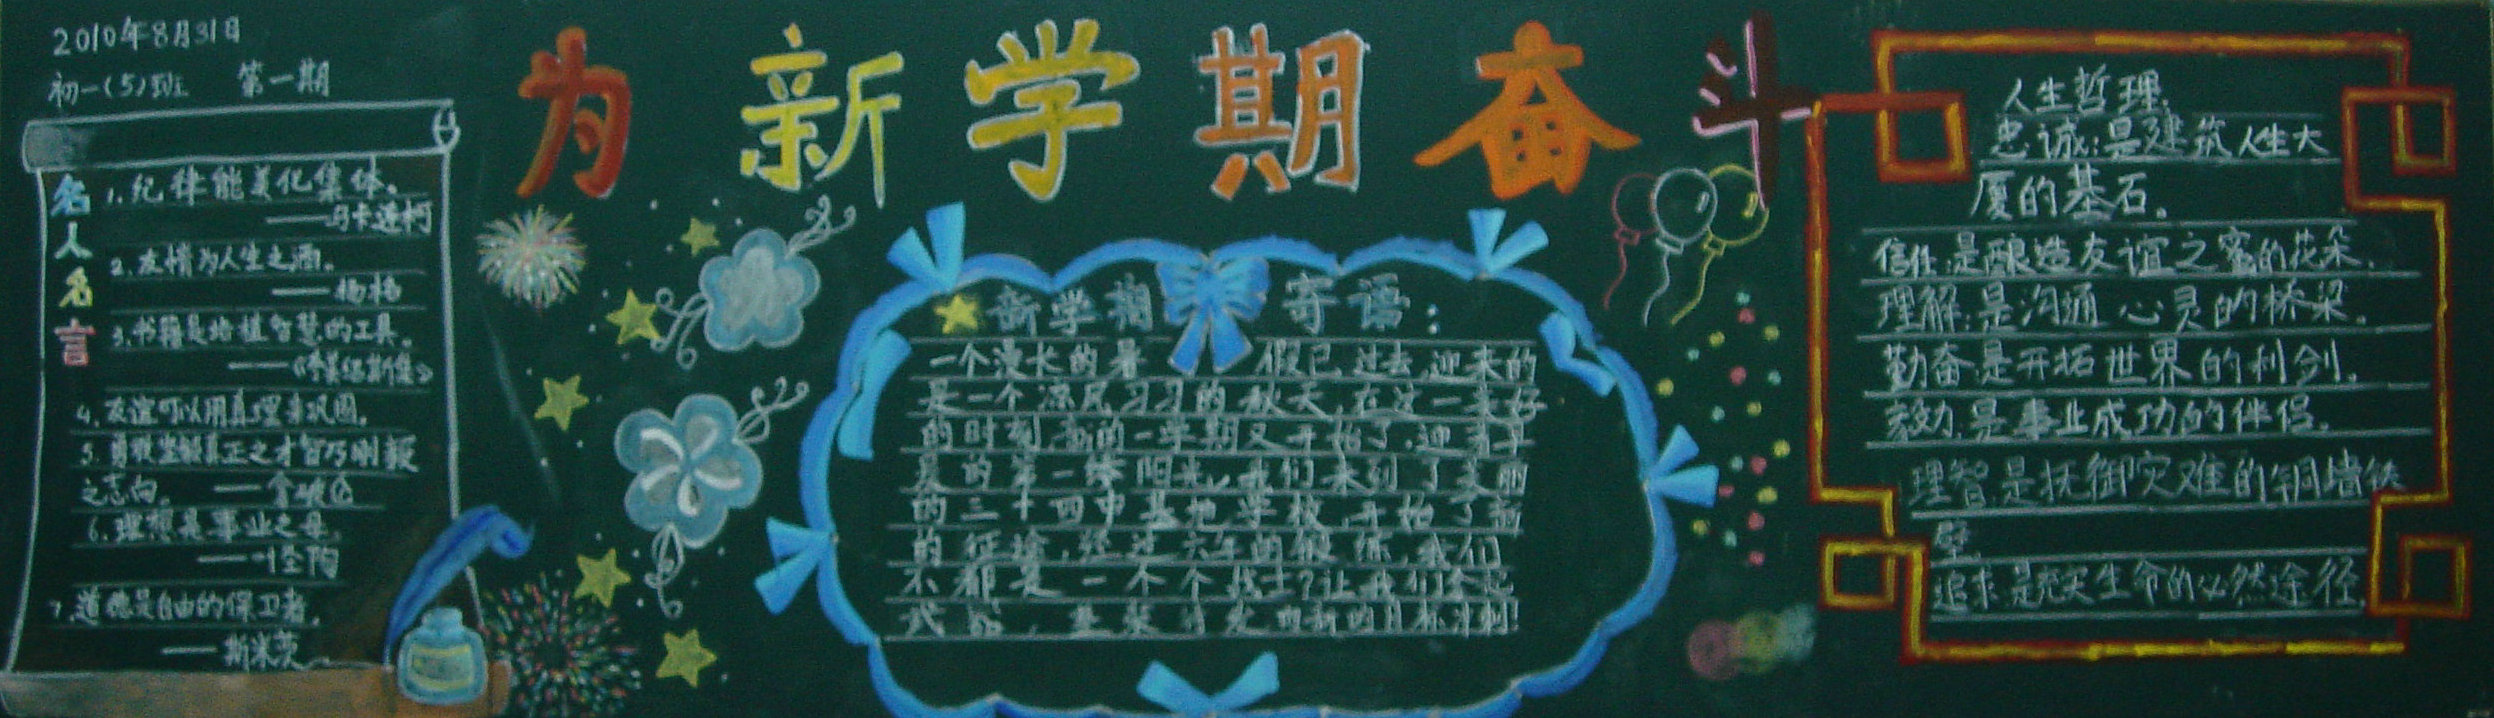 2010年8月31日
初一(5)班 第一期
为新学期奋斗
名人名言
1.纪律能美化集体。
——马卡连柯
2.友情为人生之酒。
——杨格
3.书籍是培植智慧的工具。
4.友谊可以用真理来巩固。
5.勇敢坚毅真正之才智乃刚毅
之志向。——拿破仑
6.理想是事业之母。
——叶圣陶
7.道德是自由的保卫者。
——斯米茨
新学期寄语:
一个漫长的暑假已过去,迎来的
是一个凉风习习的秋天,在这一美好
的时刻新的一学期又开始了,迎着早
晨的第一缕阳光,我们来到了美丽
的三十四中基地学校,开始了新
的征途,经过六年的锻练,我们
不都是一个个战士?让我们拿起
武器,整装待发向新的目标冲刺!
人生哲理:
忠诚:是建筑人生大
厦的基石。
信任:是酿造友谊之蜜的花朵.
理解:是沟通心灵的桥梁。
勤奋:是开拓世界的利剑.
:是事业成功的伴侣.
理智:是抚御灾难的铜墙铁
壁.
追求:是充实生命的必然途径.